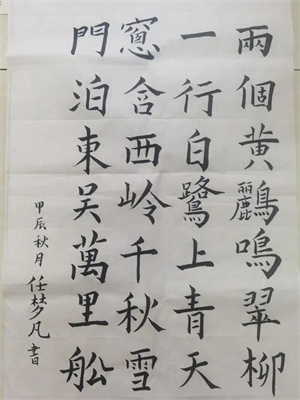 兩個黄鸝鳴翠柳
一行白鷺上青天
窻含西岭千秋雪
門泊東吴萬里舩
甲辰秋月任梦凡書